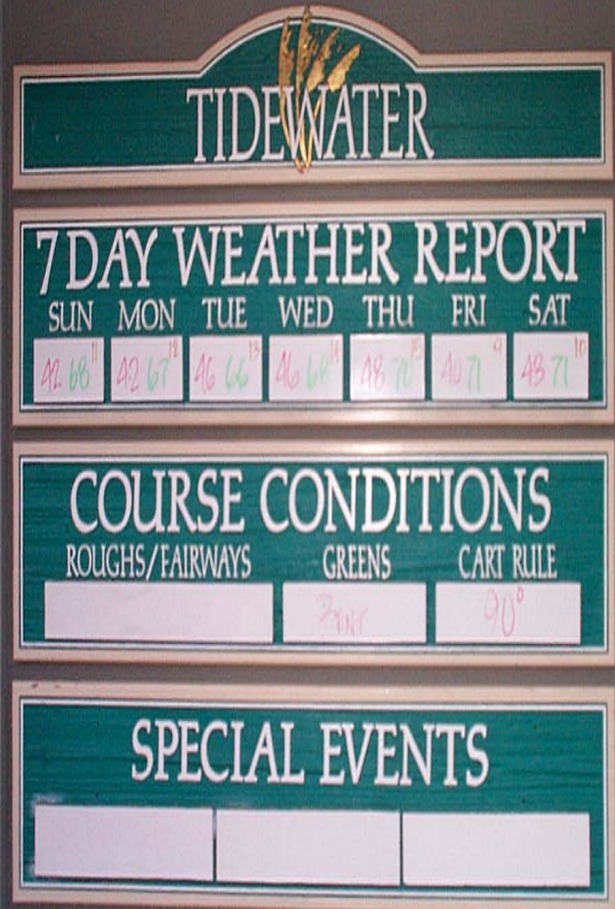 TIDEWATER
7 DAY WEATHER REPORT
SUN MON TUE WED THU FRI SAT
11 12 13 14 15 9 10
42 68 42 67 46 66 46 68 48 70 40 71 43 71
COURSE CONDITIONS
ROUGHS/FAIRWAYS GREENS CART RULE
BENT 90°
SPECIAL EVENTS